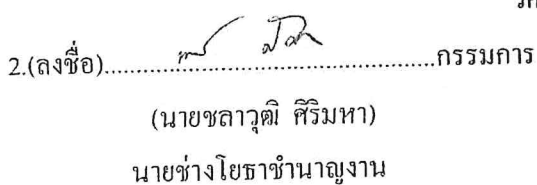 2.(ลงชื่อ)................................................กรรมการ
(นายชลาวุฒิ ศิริมหา)
นายช่างโยธาชำนาญงาน